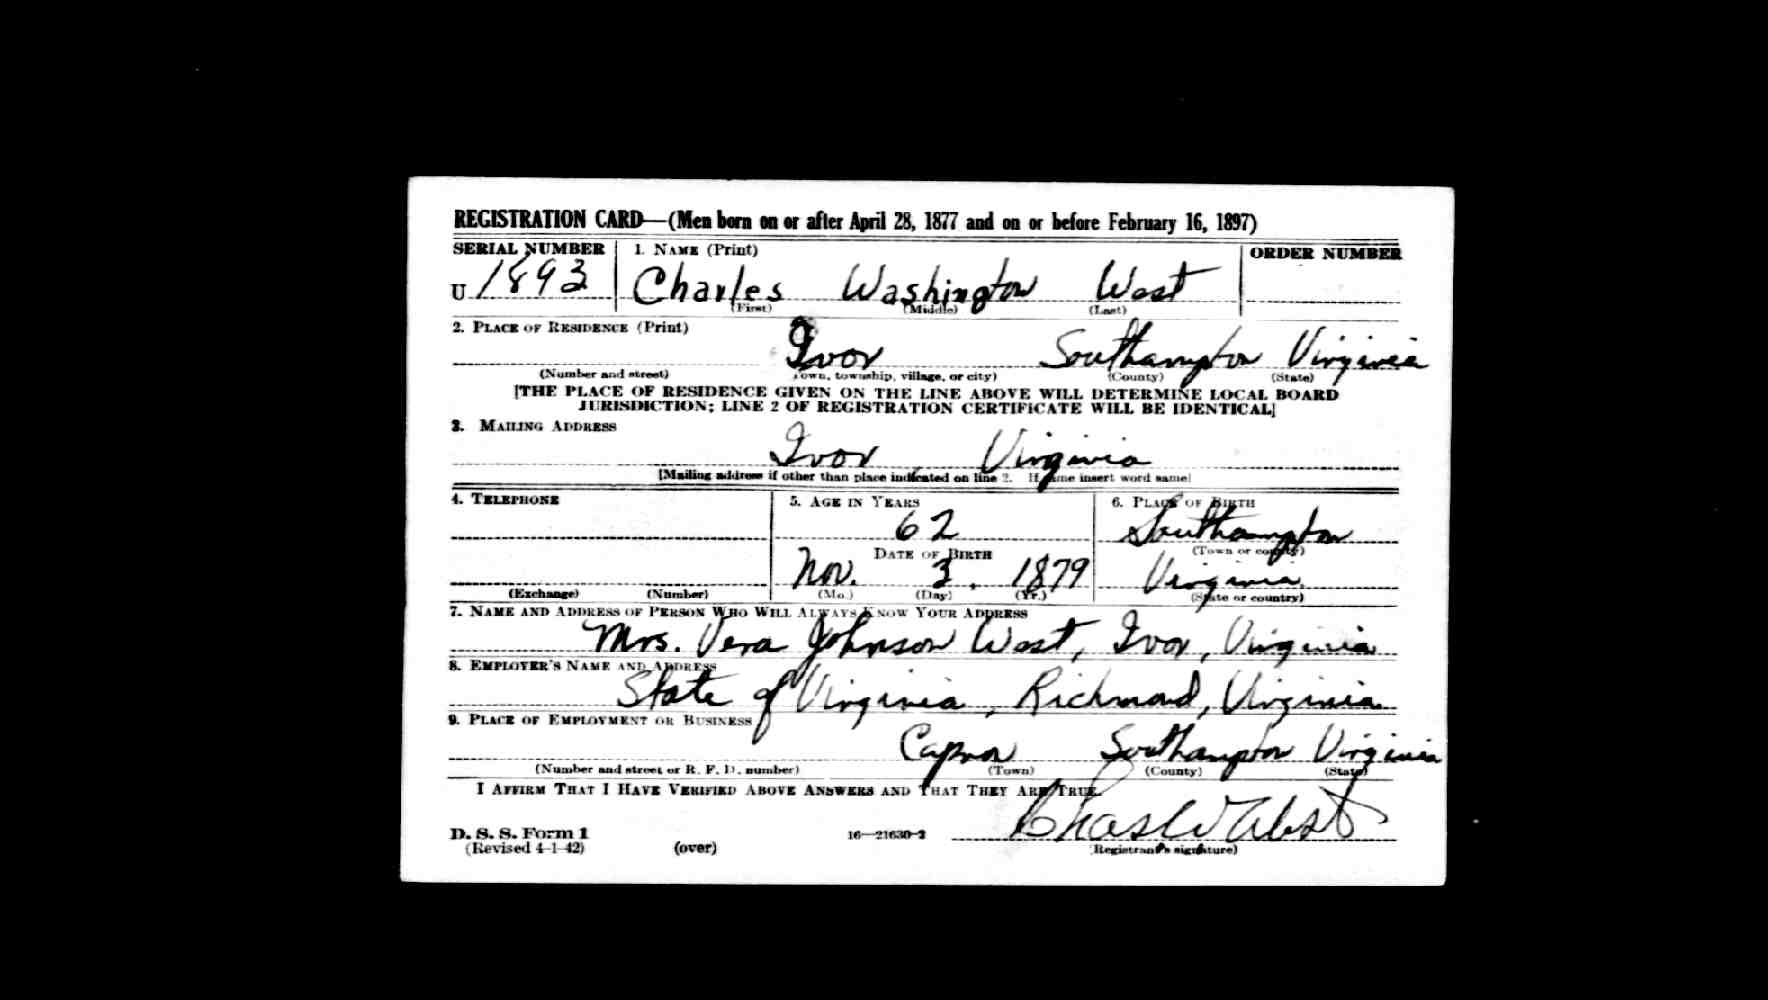 REGISTRATION CARD—(Men born on or after April 28, 1877 and on or before February 16, 1897)
SERIAL NUMBER 1. NAME (Print) ORDER NUMBER
U 1893 Charles Washington West
(First) (Middle) (Last)
2. PLACE OF RESIDENCE (Print)
Ivor Southampton Virginia
(Number and street) (Town, township, village, or city) (County) (State)
[THE PLACE OF RESIDENCE GIVEN ON THE LINE ABOVE WILL DETERMINE LOCAL BOARD
JURISDICTION; LINE 2 OF REGISTRATION CERTIFICATE WILL BE IDENTICAL]
3. MAILING ADDRESS
Ivor, Virginia
[Mailing address if other than place indicated on line 2. If same insert word same]
4. TELEPHONE 5. AGE IN YEARS 6. PLACE OF BIRTH
62 Southampton
DATE OF BIRTH (Town or county)
Nov. 3, 1879 Virginia
(Exchange) (Number) (Mo.) (Day) (Yr.) (State or country)
7. NAME AND ADDRESS OF PERSON WHO WILL ALWAYS KNOW YOUR ADDRESS
Mrs. Vera Johnson West, Ivor, Virginia
8. EMPLOYER'S NAME AND ADDRESS
State of Virginia, Richmond, Virginia
9. PLACE OF EMPLOYMENT OR BUSINESS
Capron Southampton Virginia
(Number and street or R. F. D. number) (Town) (County) (State)
I AFFIRM THAT I HAVE VERIFIED ABOVE ANSWERS AND THAT THEY ARE TRUE.
Chas W West
D. S. S. Form 1 16—21630-2
(Revised 4-1-42) (over) (Registrant's signature)